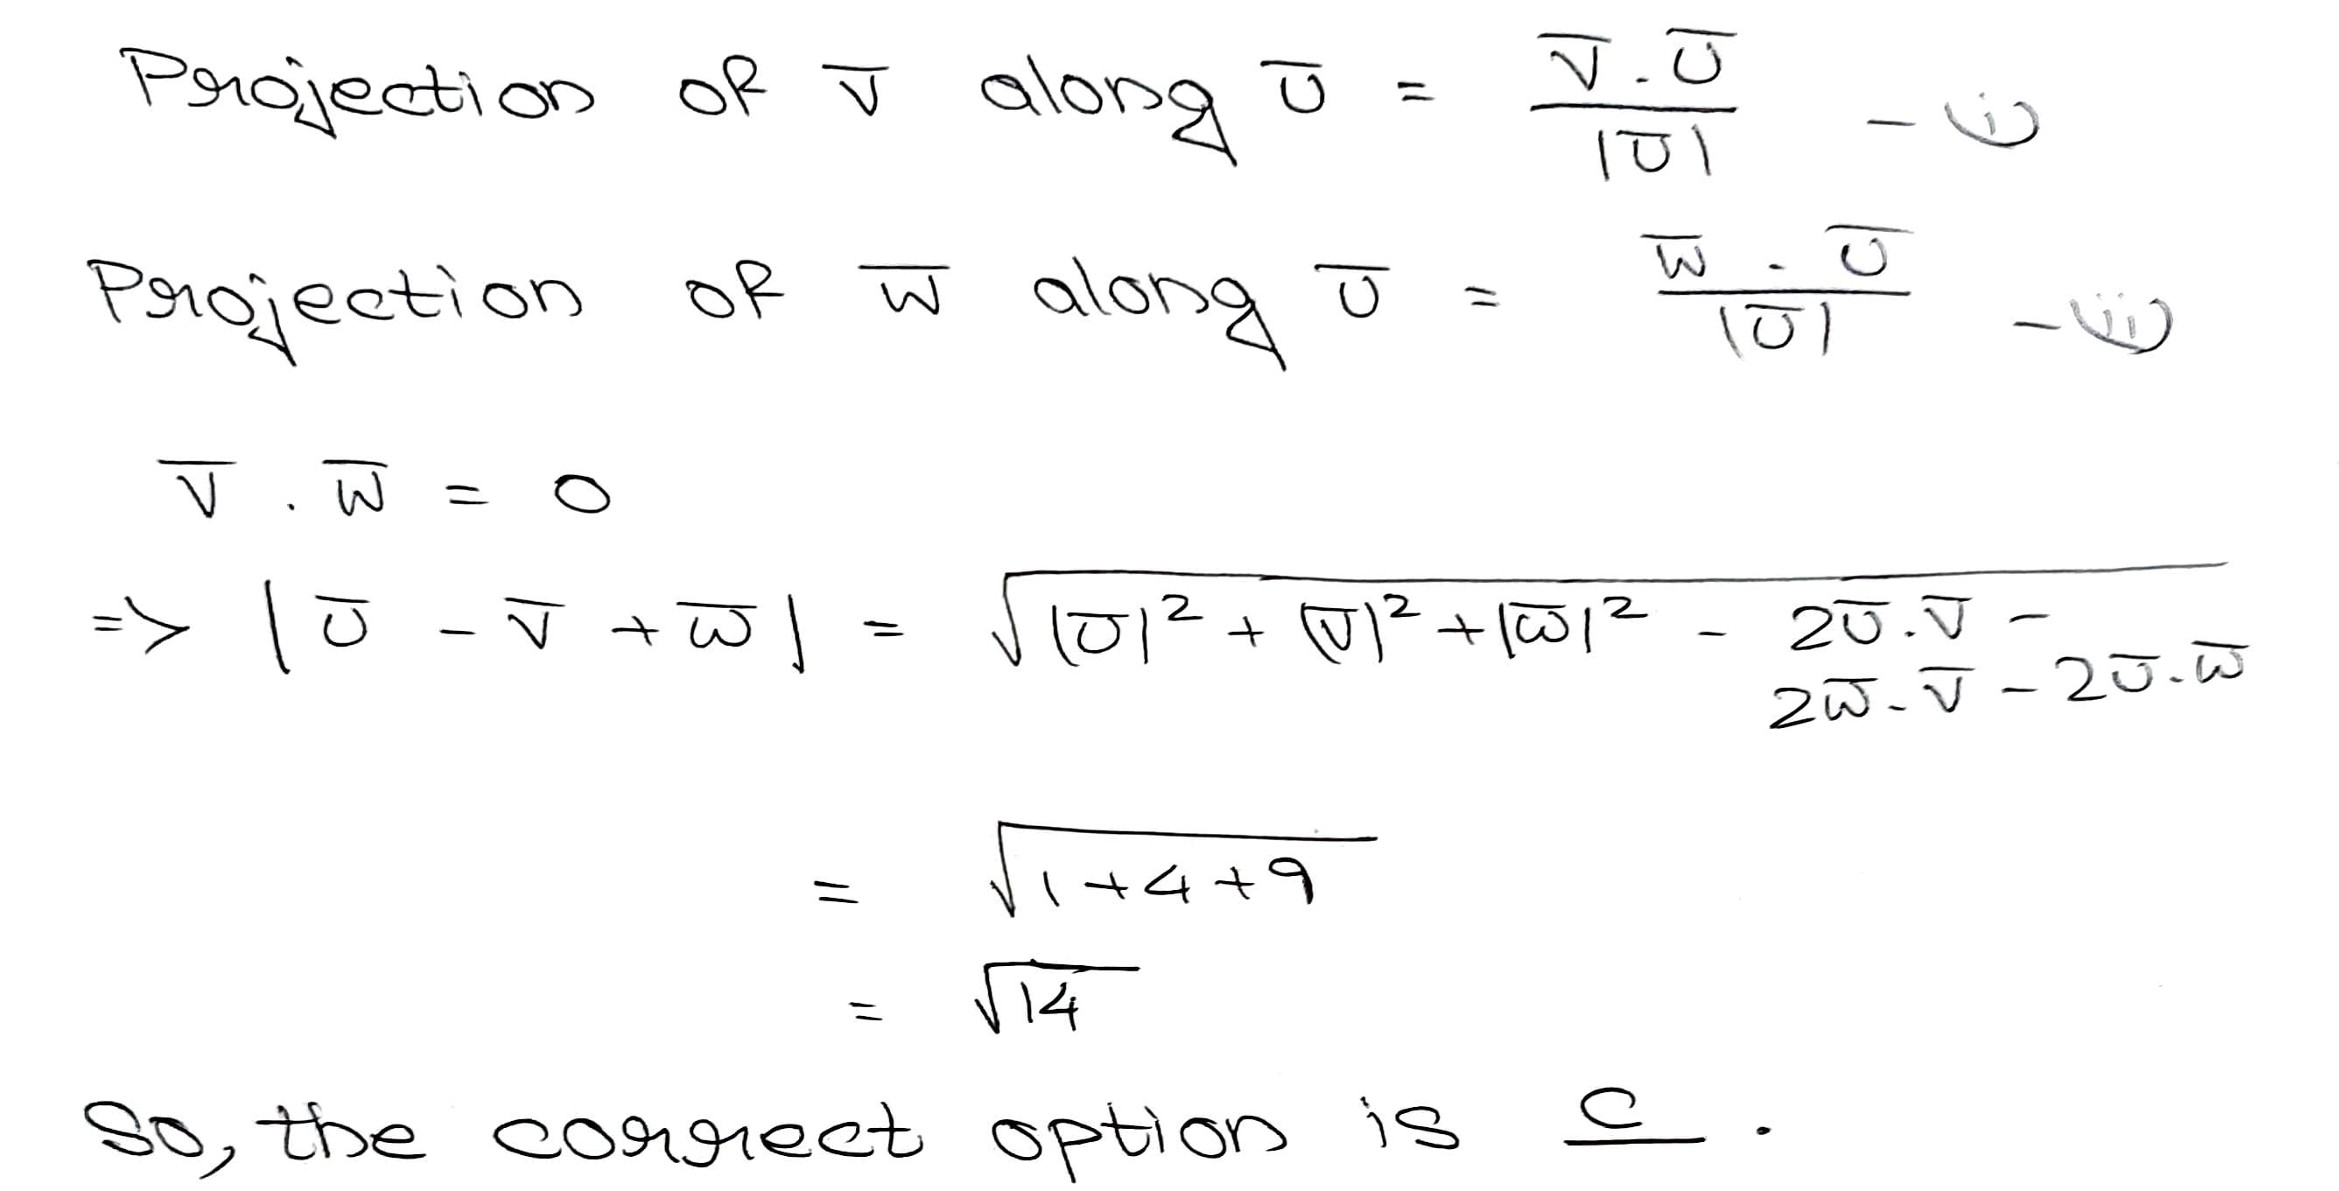 Projection of v̅ along u̅ = v̅.u̅ / |u̅| - (i)
Projection of w̅ along u̅ = w̅.u̅ / |u̅| - (ii)
v̅ . w̅ = 0
=> |u̅ - v̅ + w̅| = √(|u̅|² + |v̅|² + |w̅|² - 2u̅.v̅ -
2w̅.v̅ - 2u̅.w̅)
= √(1+4+9)
= √14
So, the correct option is C.